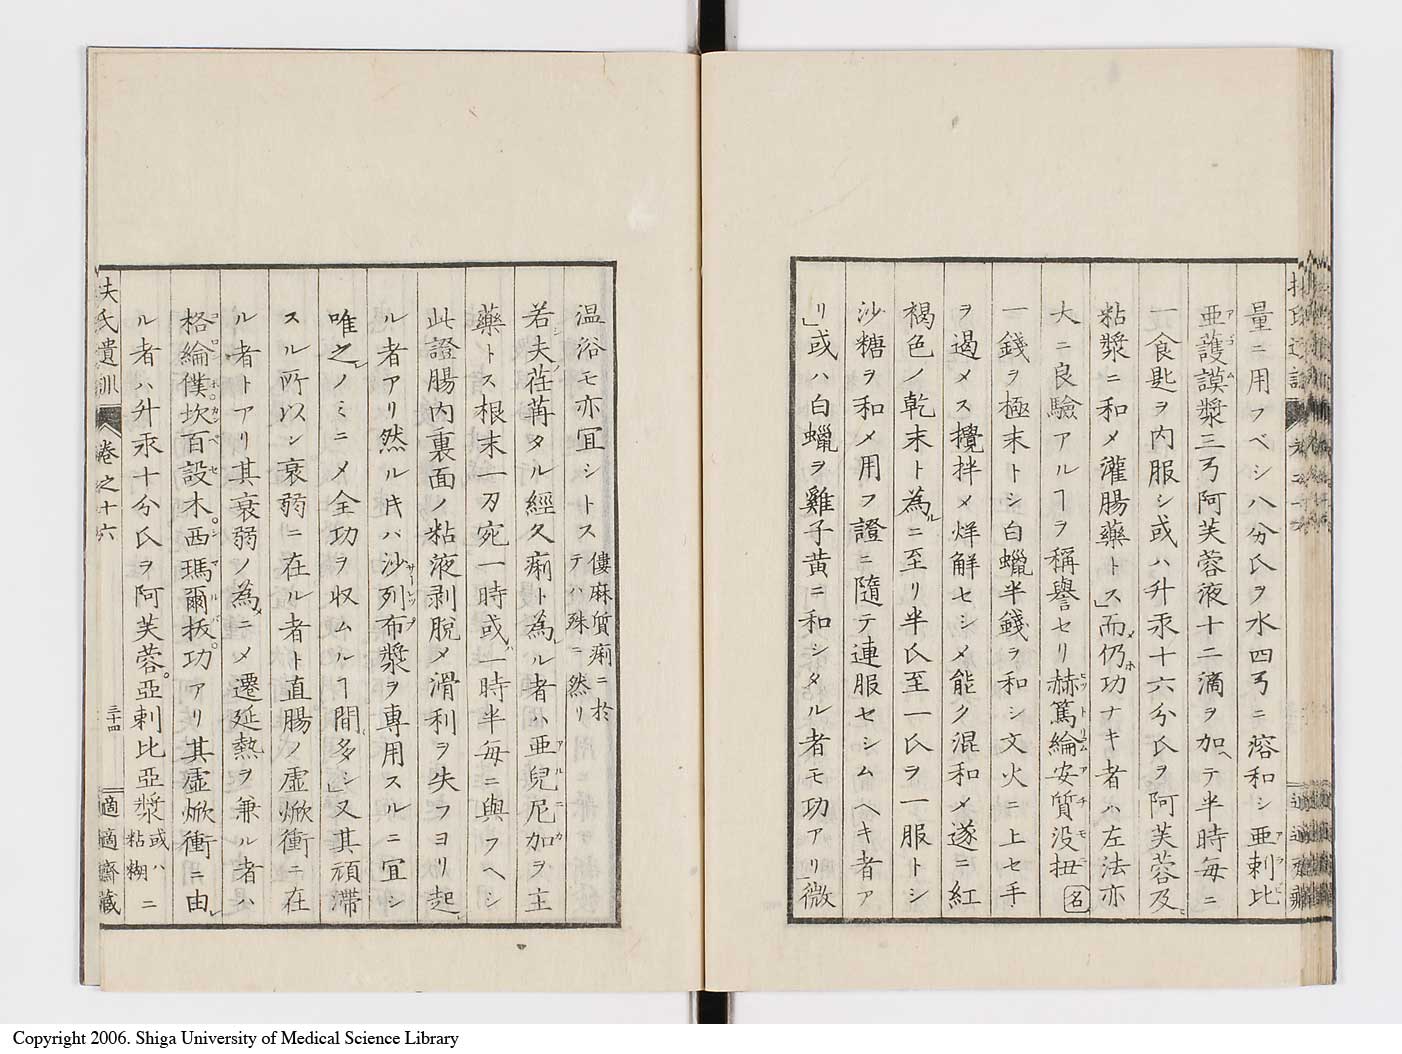 量ニ用フベシ八分氏ヲ水四丐ニ溶和シ亜剌比
亜護謨漿三丐阿芙蓉液十二滴ヲ加ヘテ半時毎ニ
一食匙ヲ内服シ或ハ升汞十六分氏ヲ阿芙蓉及
粘漿ニ和メ灌腸藥トス」而仍功ナキ者ハ左法亦
大ニ良驗アルヿヲ稱譽セリ赫篤綸安質没扭名
一錢ヲ極末トシ白蠟半錢ヲ和シ文火ニ上セ手
ヲ遏メス攪拌メ烊解セシメ能ク混和メ遂ニ紅
褐色ノ乾末ト為ルニ至リ半氏至一氏ヲ一服トシ
沙糖ヲ和メ用フ證ニ隨テ連服セシムヘキ者ア
リ」或ハ白蠟ヲ雞子黄ニ和シタル者モ功アリ」微
温浴モ亦宜シトス僂麻質痢ニ於テハ殊ニ然リ
若夫荏苒タル經久痢ト為ル者ハ亜兒尼加ヲ主
藥トス根末一刀宛一時或ハ一時半毎ニ與フヘシ
此證腸内裏面ノ粘液剥脱メ滑利ヲ失フヨリ起
ル者アリ然ル片ハ沙列布漿ヲ專用スルニ宜シ
唯之ノミニメ全功ヲ収ムルヿ間多シ」又其頑滞
スル所以ン衰弱ニ在ル者ト直腸ノ虚焮衝ニ在
ル者トアリ其衰弱ノ為メニメ遷延熱ヲ兼ル者ハ
格綸僕坎百設木。西瑪爾抜。功アリ其虚焮衝ニ由
ル者ハ升汞十分氏ヲ阿芙蓉。亞剌比亞漿或ハ粘糊ニ
夫氏遺訓 卷之十六 三十四 適適齋藏
Copyright 2006. Shiga University of Medical Science Library